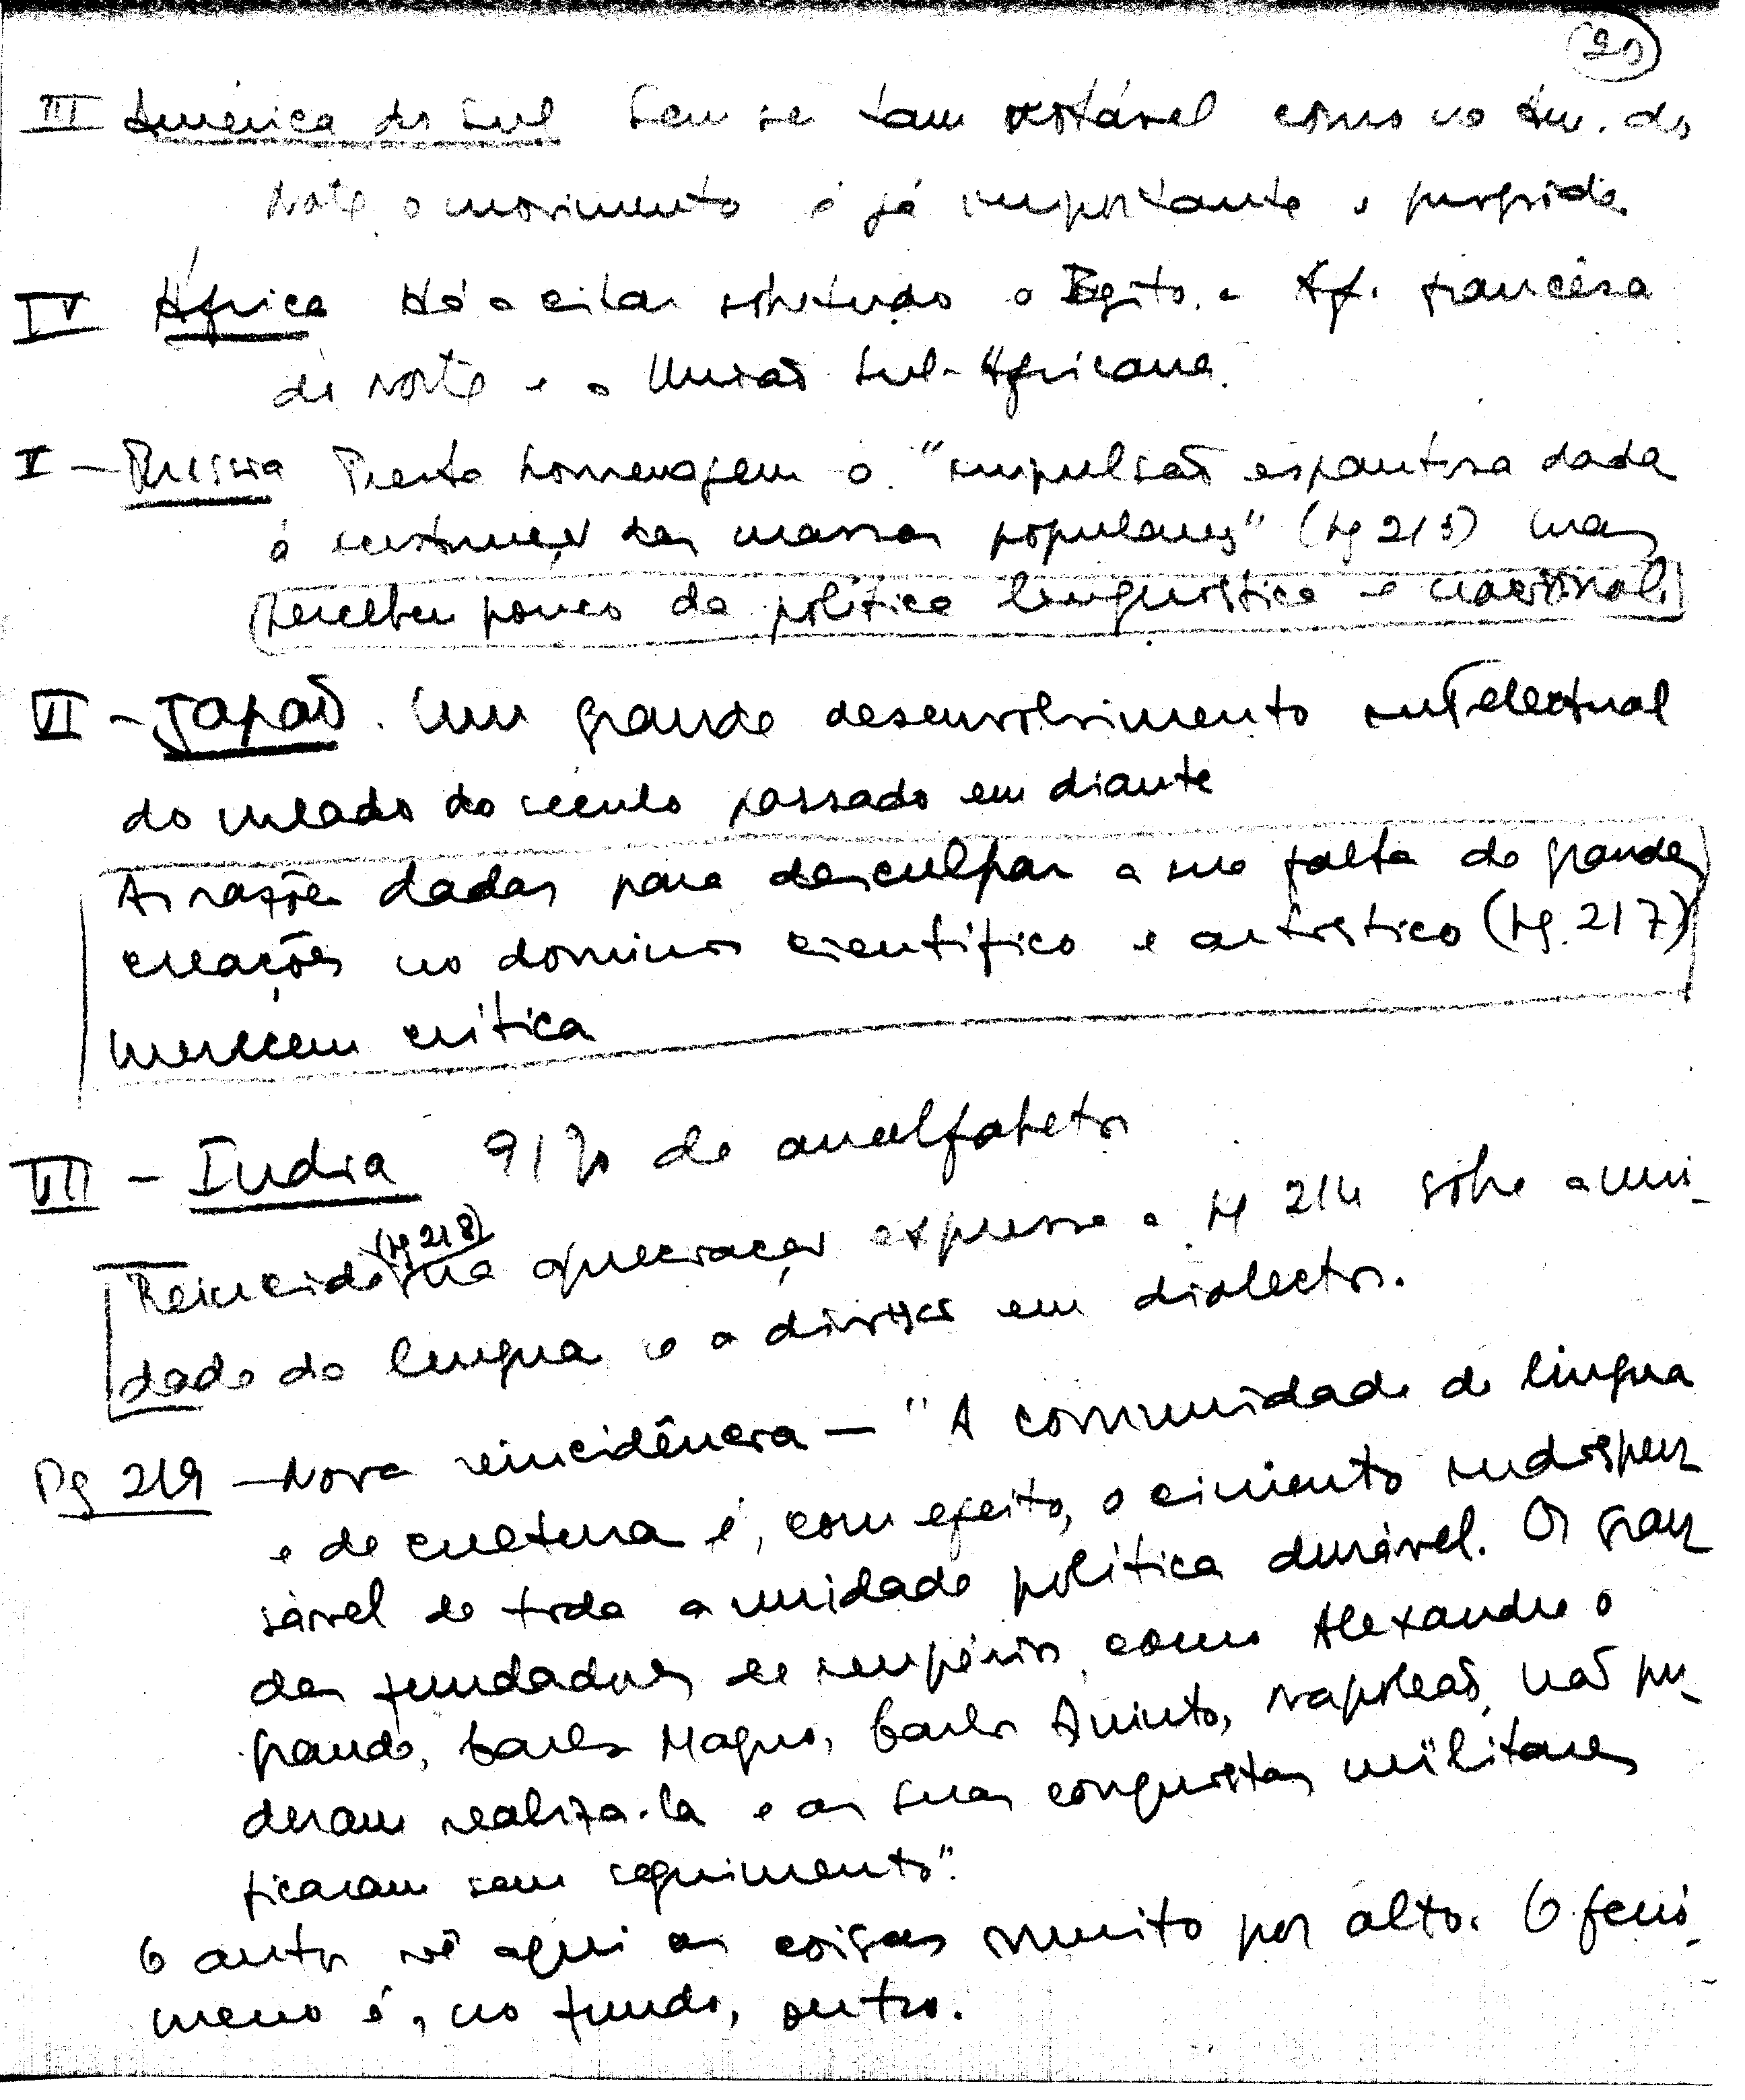 III América do Sul Sem se tam notável como no Am. do
Norte o movimento é já importante e progride
IV África Há a citar sobretudo o Egito, a Af. francêsa
do norte e a União Sul-Africana.
V – Russia Presta homenagem à "impulsão espantosa dada
à instrução das massas populares" (pg 215) mas
percebeu pouco da política linguística e nacional.
VI – Japão. Um grande desenvolvimento intelectual
do meado do século passado em diante
As razões dadas para desculpar a sua falta de grandes
creações no dominio científico e artístico (pg. 217)
merecem crítica
VII – India 91% de analfabetos
(pg 218)
Reincide na apreciação expressa a pg 214 sôbre a uni-
dade da lingua e a divisão em dialectos.
Pg 219 – Nova reincidência – "A comunidade de lingua
e de cultura é, com efeito, o cimento indispen-
sável de toda a unidade política durável. Os gran-
des fundadores de impérios, como Alexandre o
grande, Carlos Magno, Carlos Quinto, Napoleão, não pu-
deram realiza-la e as suas conquistas militares
ficaram sem seguimento".
O autor vê aqui as coisas muito por alto. O fenó-
meno é, no fundo, outro.